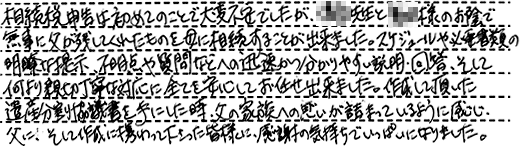 相続税申告は初めてのことで大変不安でしたが、先生と様のお陰で
無事に父が残してくれたものを母に相続することが出来ました。スケジュールや必要書類の
明瞭な提示、不明点や質問などへの迅速かつ分かりやすい説明・回答、そして
何より親切丁寧な対応に全てを安心してお任せ出来ました。作成して頂いた
遺産分割協議書を手にした時、父の家族への思いが詰まっているように感じ、
父に、そして作成に携わって下さった皆様に、感謝の気持ちでいっぱいになりました。